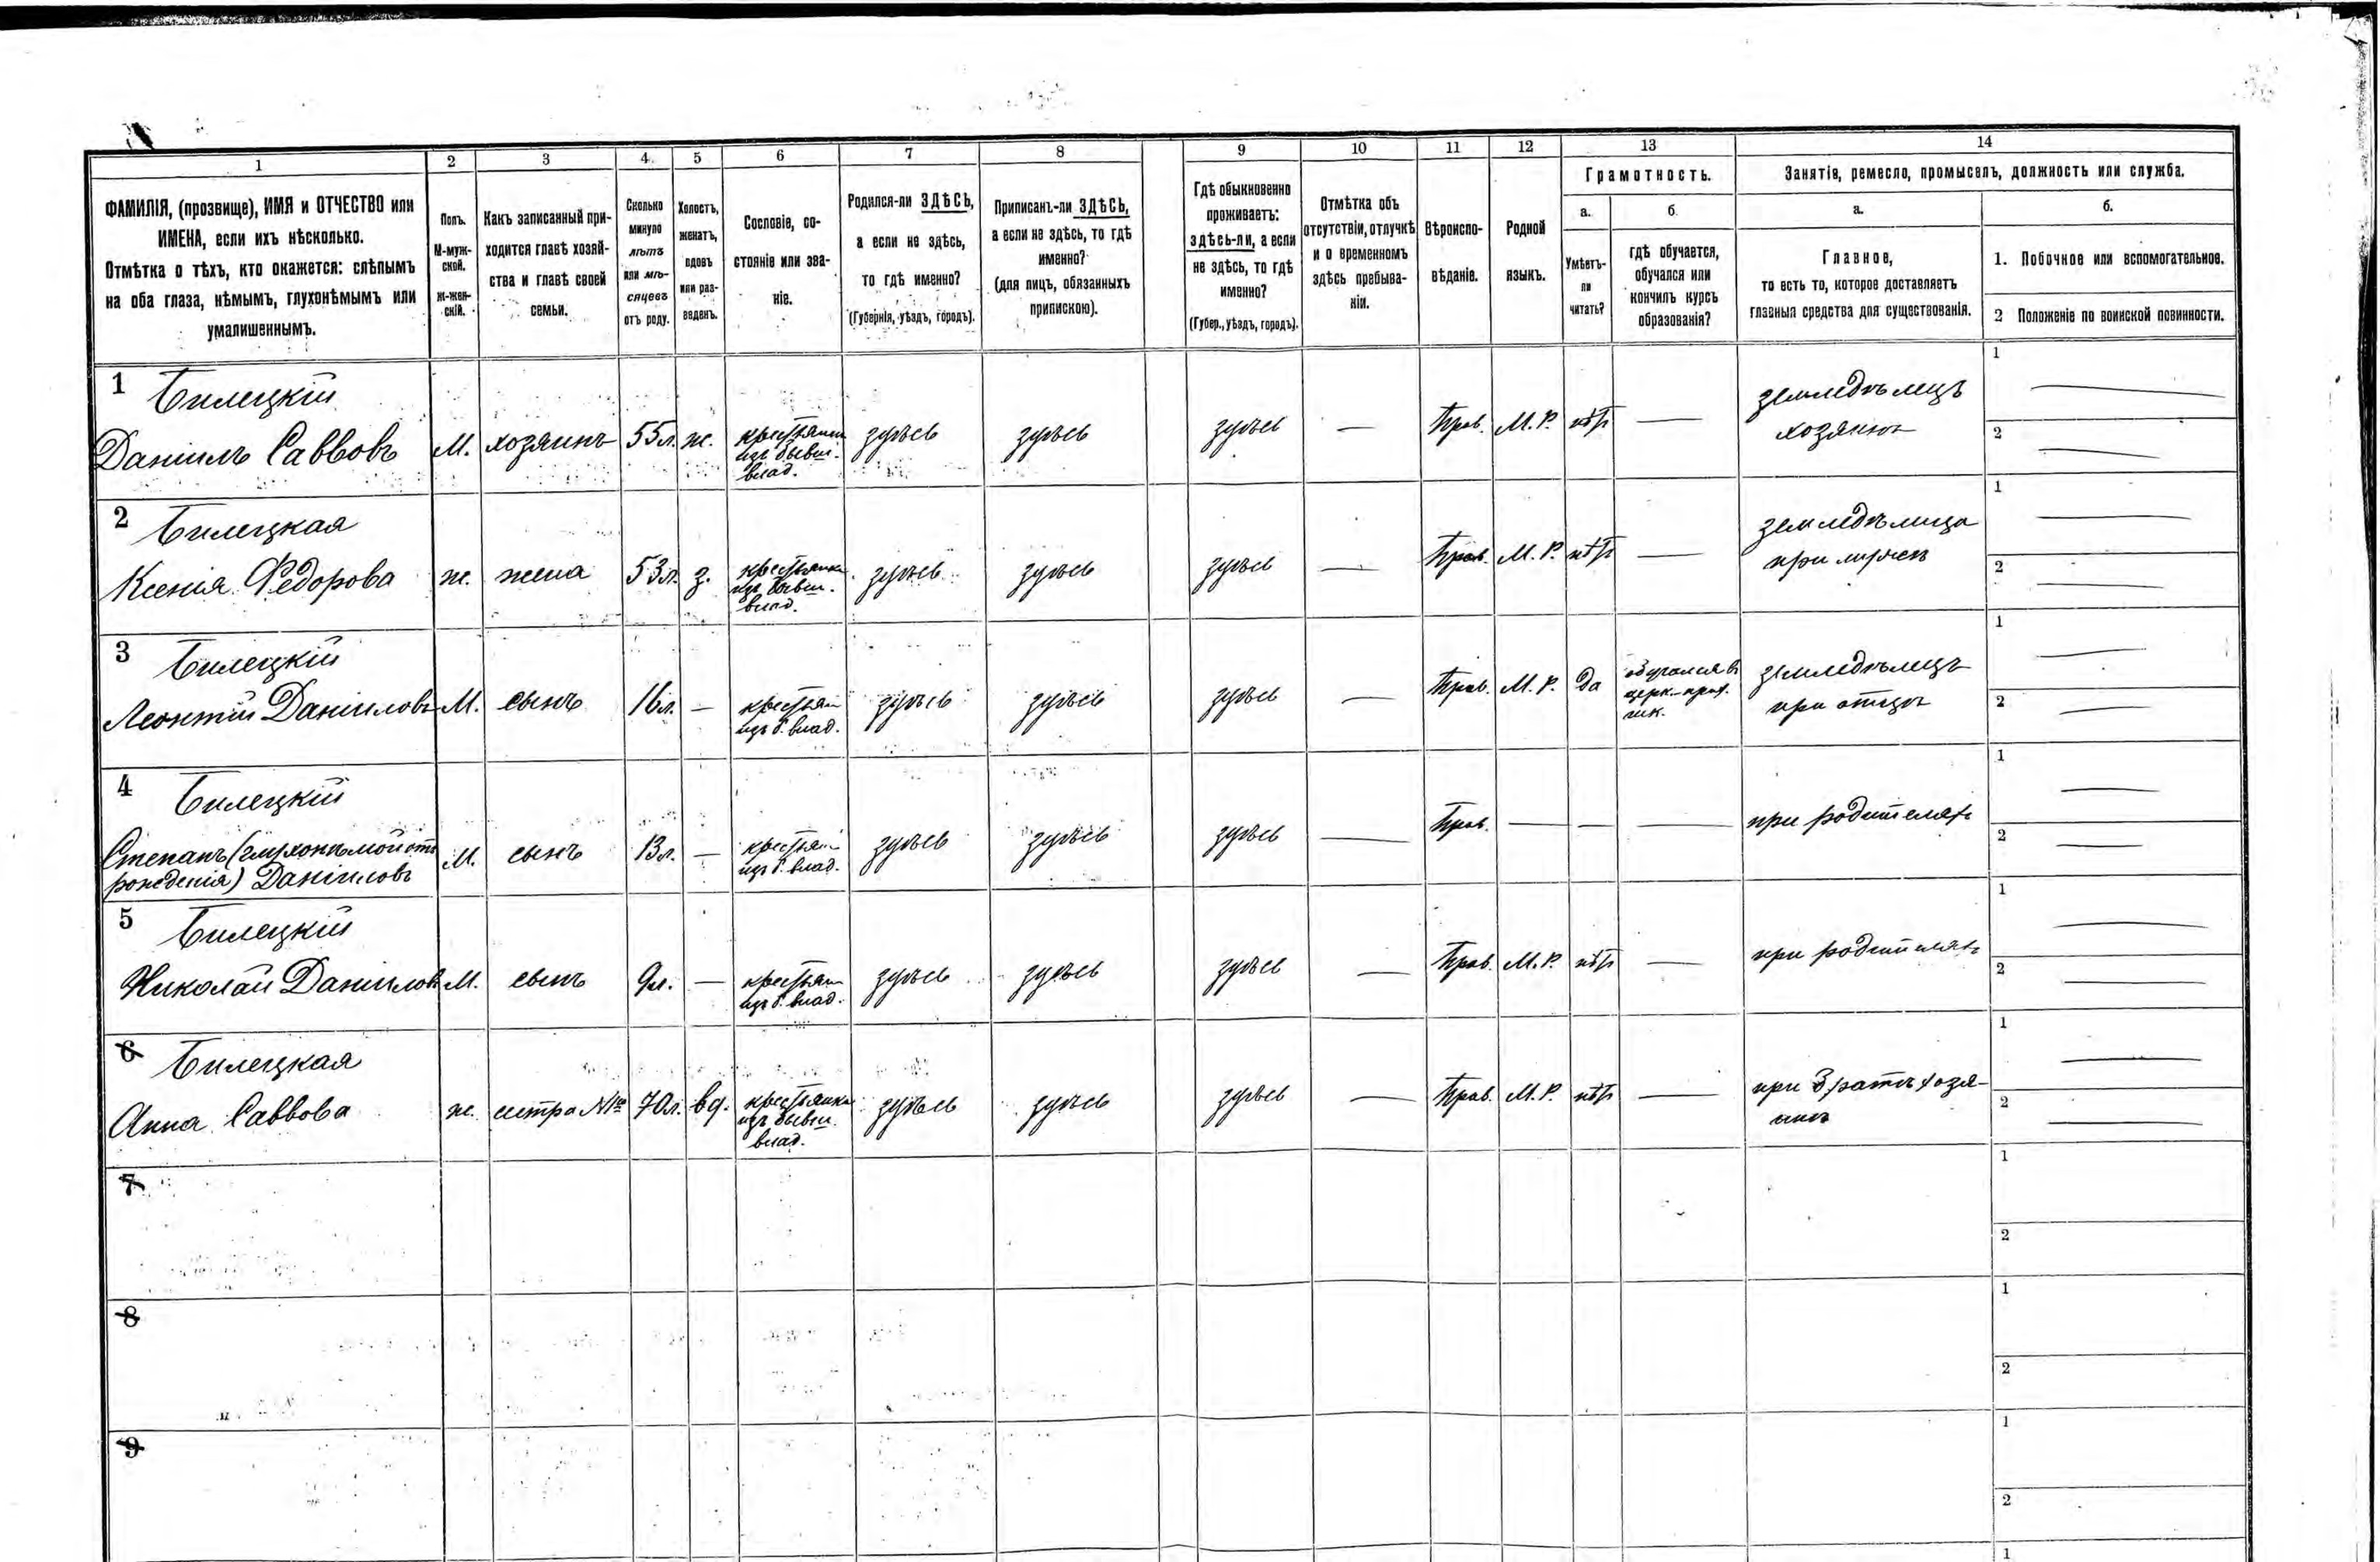 1 2 3 4 5 6 7 8 9 10 11 12 13 14
ФАМИЛІЯ, (прозвище), ИМЯ и ОТЧЕСТВО или
ИМЕНА, если ихъ нѣсколько.
Отмѣтка о тѣхъ, кто окажется: слѣпымъ
на оба глаза, нѣмымъ, глухонѣмымъ или
умалишеннымъ.
Полъ.
М-муж-
ской.
Ж-жен-
скій.
Какъ записанный при-
ходится главѣ хозяй-
ства и главѣ своей
семьи.
Сколько
минуло
лѣтъ
или мѣ-
сяцевъ
отъ роду.
Холостъ,
женатъ,
вдовъ
или раз-
веденъ.
Сословіе, со-
стояніе или зва-
ніе.
Родился-ли ЗДѢСЬ,
а если не здѣсь,
то гдѣ именно?
(Губернія, уѣздъ, городъ).
Приписанъ-ли ЗДѢСЬ,
а если не здѣсь, то гдѣ
именно?
(для лицъ, обязанныхъ
припискою).
Гдѣ обыкновенно
проживаетъ:
здѣсь-ли, а если
не здѣсь, то гдѣ
именно?
(Губер., уѣздъ, городъ).
Отмѣтка объ
отсутствіи, отлучкѣ
и о временномъ
здѣсь пребыва-
ніи.
Вѣроиспо-
вѣданіе.
Родной
языкъ.
Грамотность.
а.
Умѣетъ-
ли
читать?
б.
гдѣ обучается,
обучался или
кончилъ курсъ
образованія?
Занятіе, ремесло, промыселъ, должность или служба.
а.
Главное,
то есть то, которое доставляетъ
главныя средства для существованія.
б.
1. Побочное или вспомогательное.
2 Положеніе по воинской повинности.
1 Билецкій
Даніилъ Саввовъ
М. хозяинъ 55 л. ж.
крестьянинъ
изъ бывш.
влад.
здѣсь здѣсь здѣсь — Прав. М. Р. нѣтъ —
земледѣлецъ
хозяинъ
1 —
2 —
2 Билецкая
Ксенія Федорова
ж. жена 53 л. з.
крестьянка
изъ бывш.
влад.
здѣсь здѣсь здѣсь — Прав. М. Р. нѣтъ —
земледѣлица
при мужѣ
1 —
2 —
3 Билецкій
Леонтій Даніиловъ
М. сынъ 16 л. —
крестьян
изъ б. влад.
здѣсь здѣсь здѣсь — Прав. М. Р. да
обучался въ
церк.-прих.
шк.
земледѣлецъ
при отцѣ
1 —
2 —
4 Билецкій
Степанъ (глухонѣмой отъ
рожденія) Даніиловъ
М. сынъ 13 л. —
крестьян
изъ б. влад.
здѣсь здѣсь здѣсь — Прав. — — —
при родителяхъ
1 —
2 —
5 Билецкій
Николай Даніиловъ
М. сынъ 9 л. —
крестьян
изъ б. влад.
здѣсь здѣсь здѣсь — Прав. М. Р. нѣтъ —
при родителяхъ
1 —
2 —
6 Билецкая
Анна Саввова
ж. сестра №1го 70 л. вд.
крестьянка
изъ бывш.
влад.
здѣсь здѣсь здѣсь — Прав. М. Р. нѣтъ —
при братѣ хозя-
инѣ
1 —
2 —
7
1
2
8
1
2
9
1
2
1